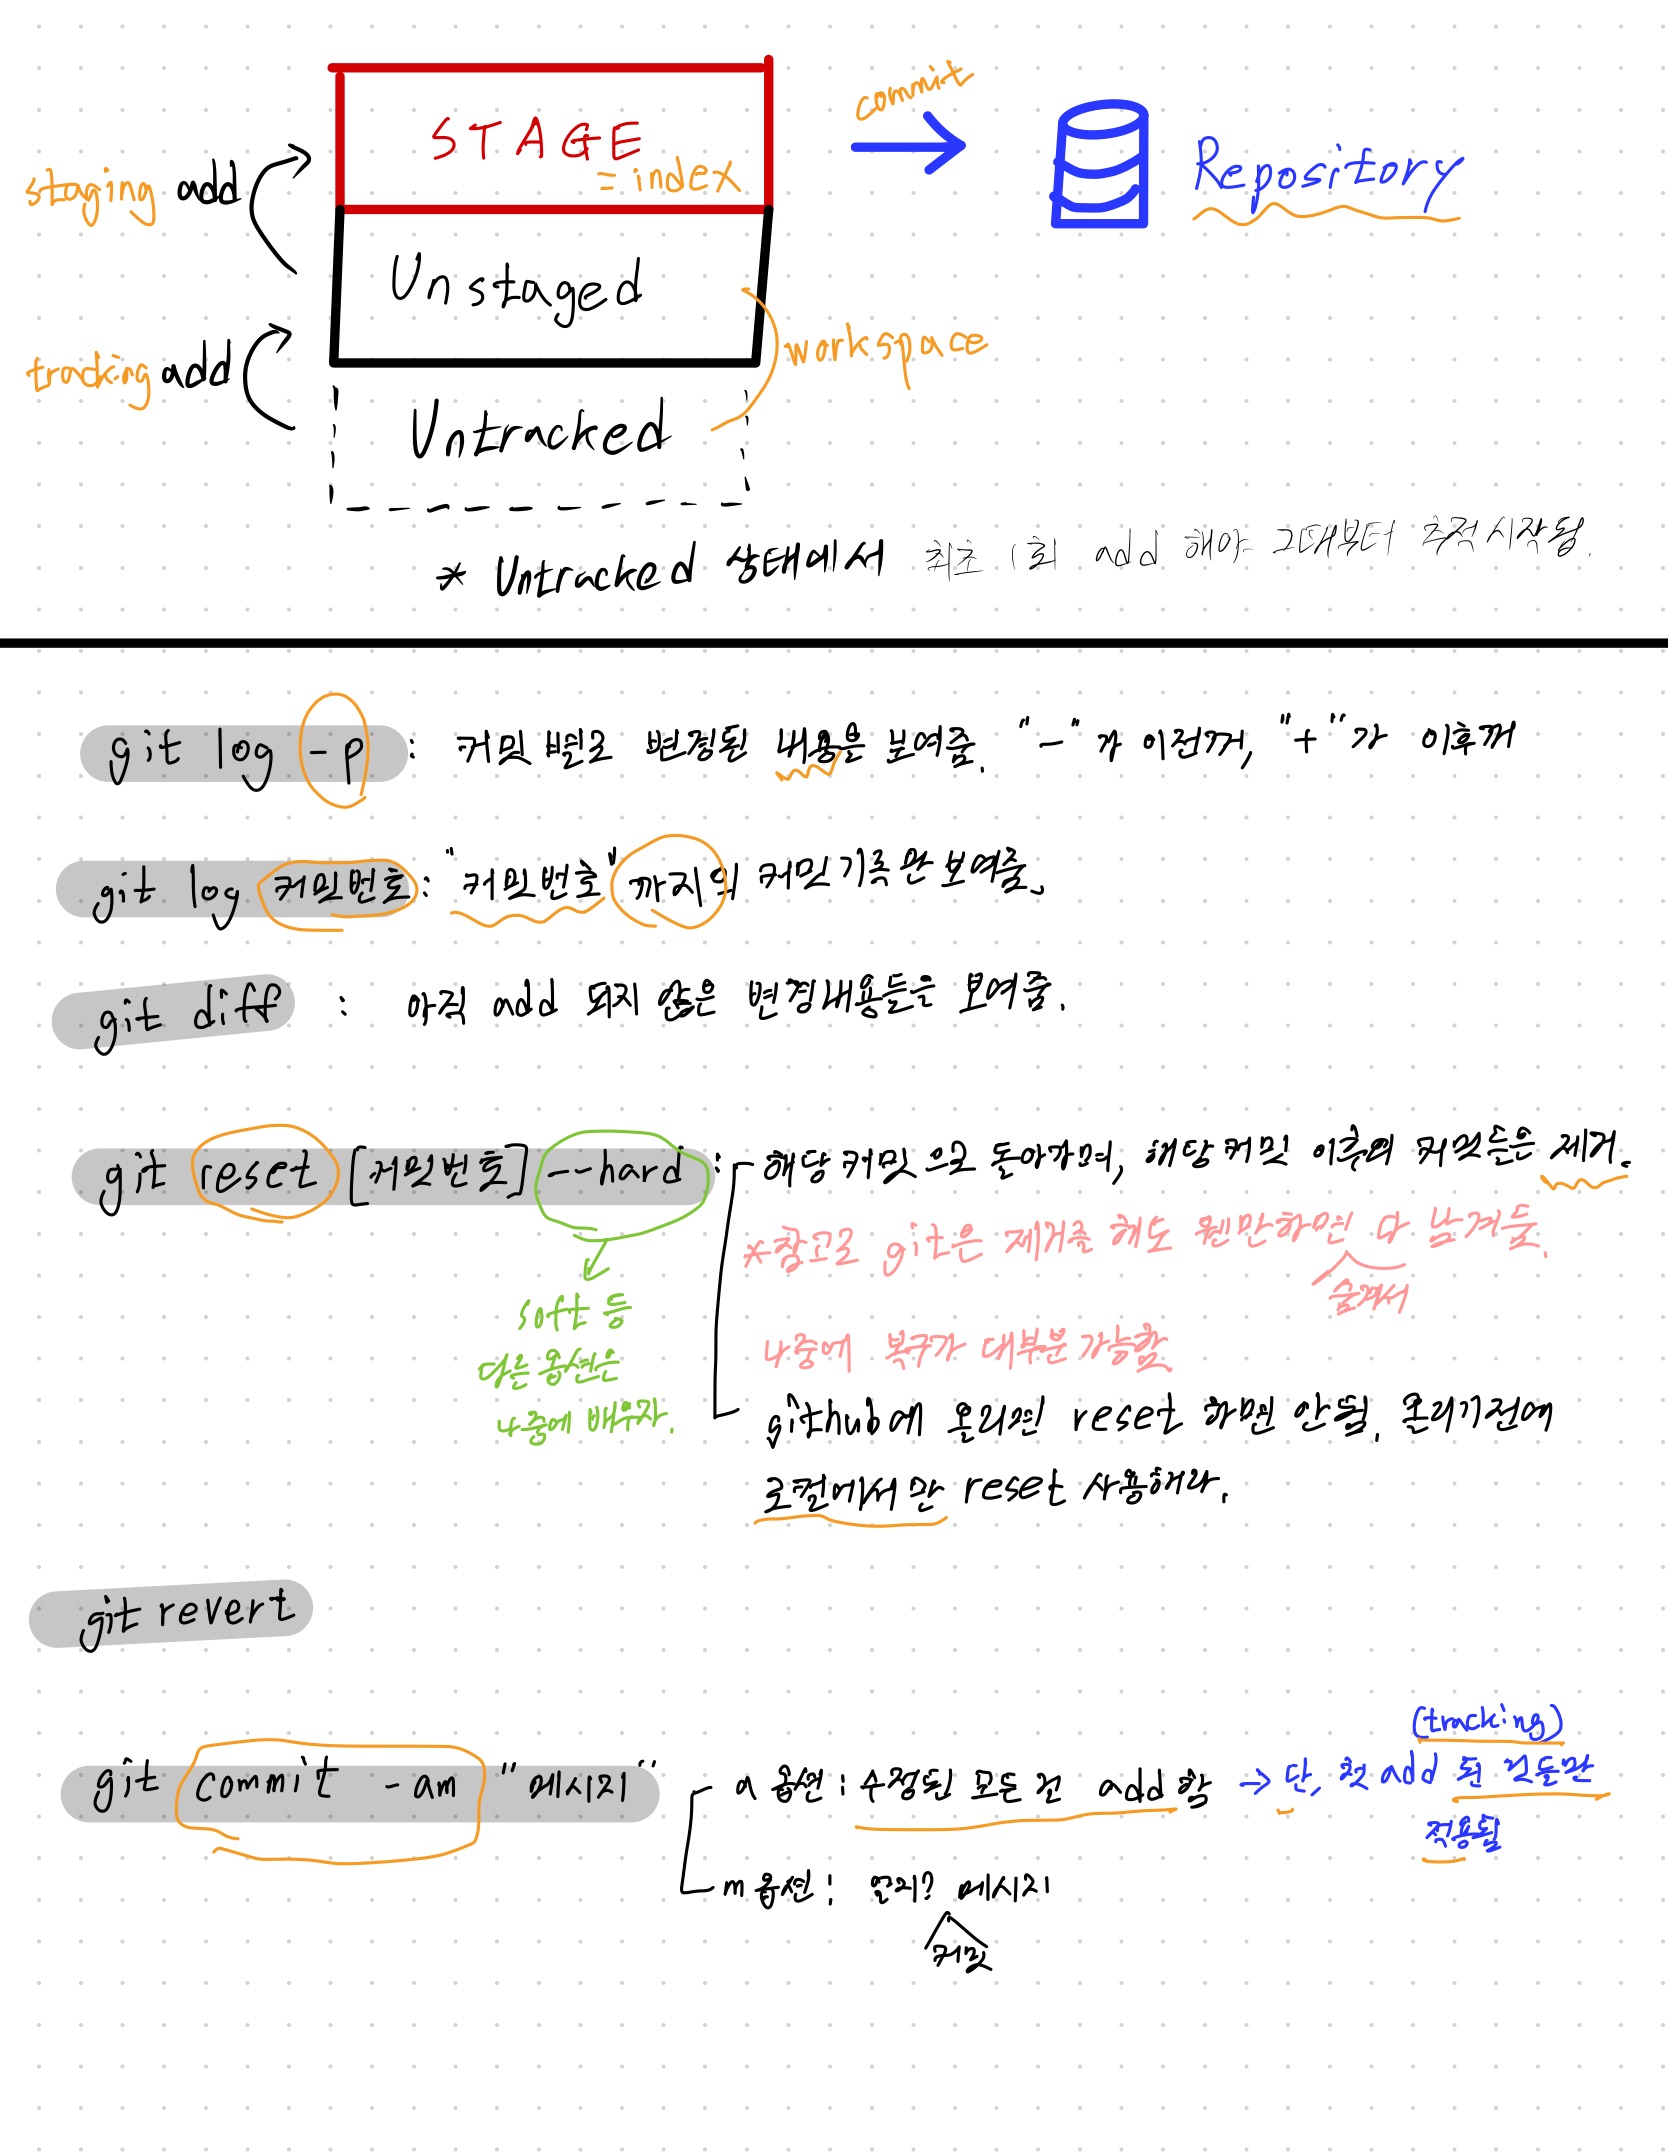 commit
STAGE
= index
Repository
staging add
Unstaged
workspace
tracking add
Untracked
* Untracked 상태에서 최초 1회 add 해야 그때부터 추적 시작됨.
git log -p : 커밋 별로 변경된 내용을 보여줌. "-"가 이전꺼, "+"가 이후꺼
git log 커밋번호 : "커밋번호"까지의 커밋기록만 보여줌.
git diff : 아직 add 되지 않은 변경내용들은 보여줌.
git reset [커밋번호] --hard : 해당 커밋으로 돌아가며, 해당커밋 이후의 커밋들은 제거.
*참고로 git은 제거를 해도 웬만하면 다 남겨둠.
숨겨서
soft 등
다른 옵션은
나중에 배우자.
나중에 복구가 대부분 가능함
github에 올리면 reset 하면 안됨. 올리기전에
로컬에서만 reset 사용해라.
git revert
(tracking)
git commit -am "메시지" a 옵션 : 수정된 모든 건 add 함 → 단, 첫 add 된 것들만
적용됨
m 옵션 : 알지? 메시지
커밋